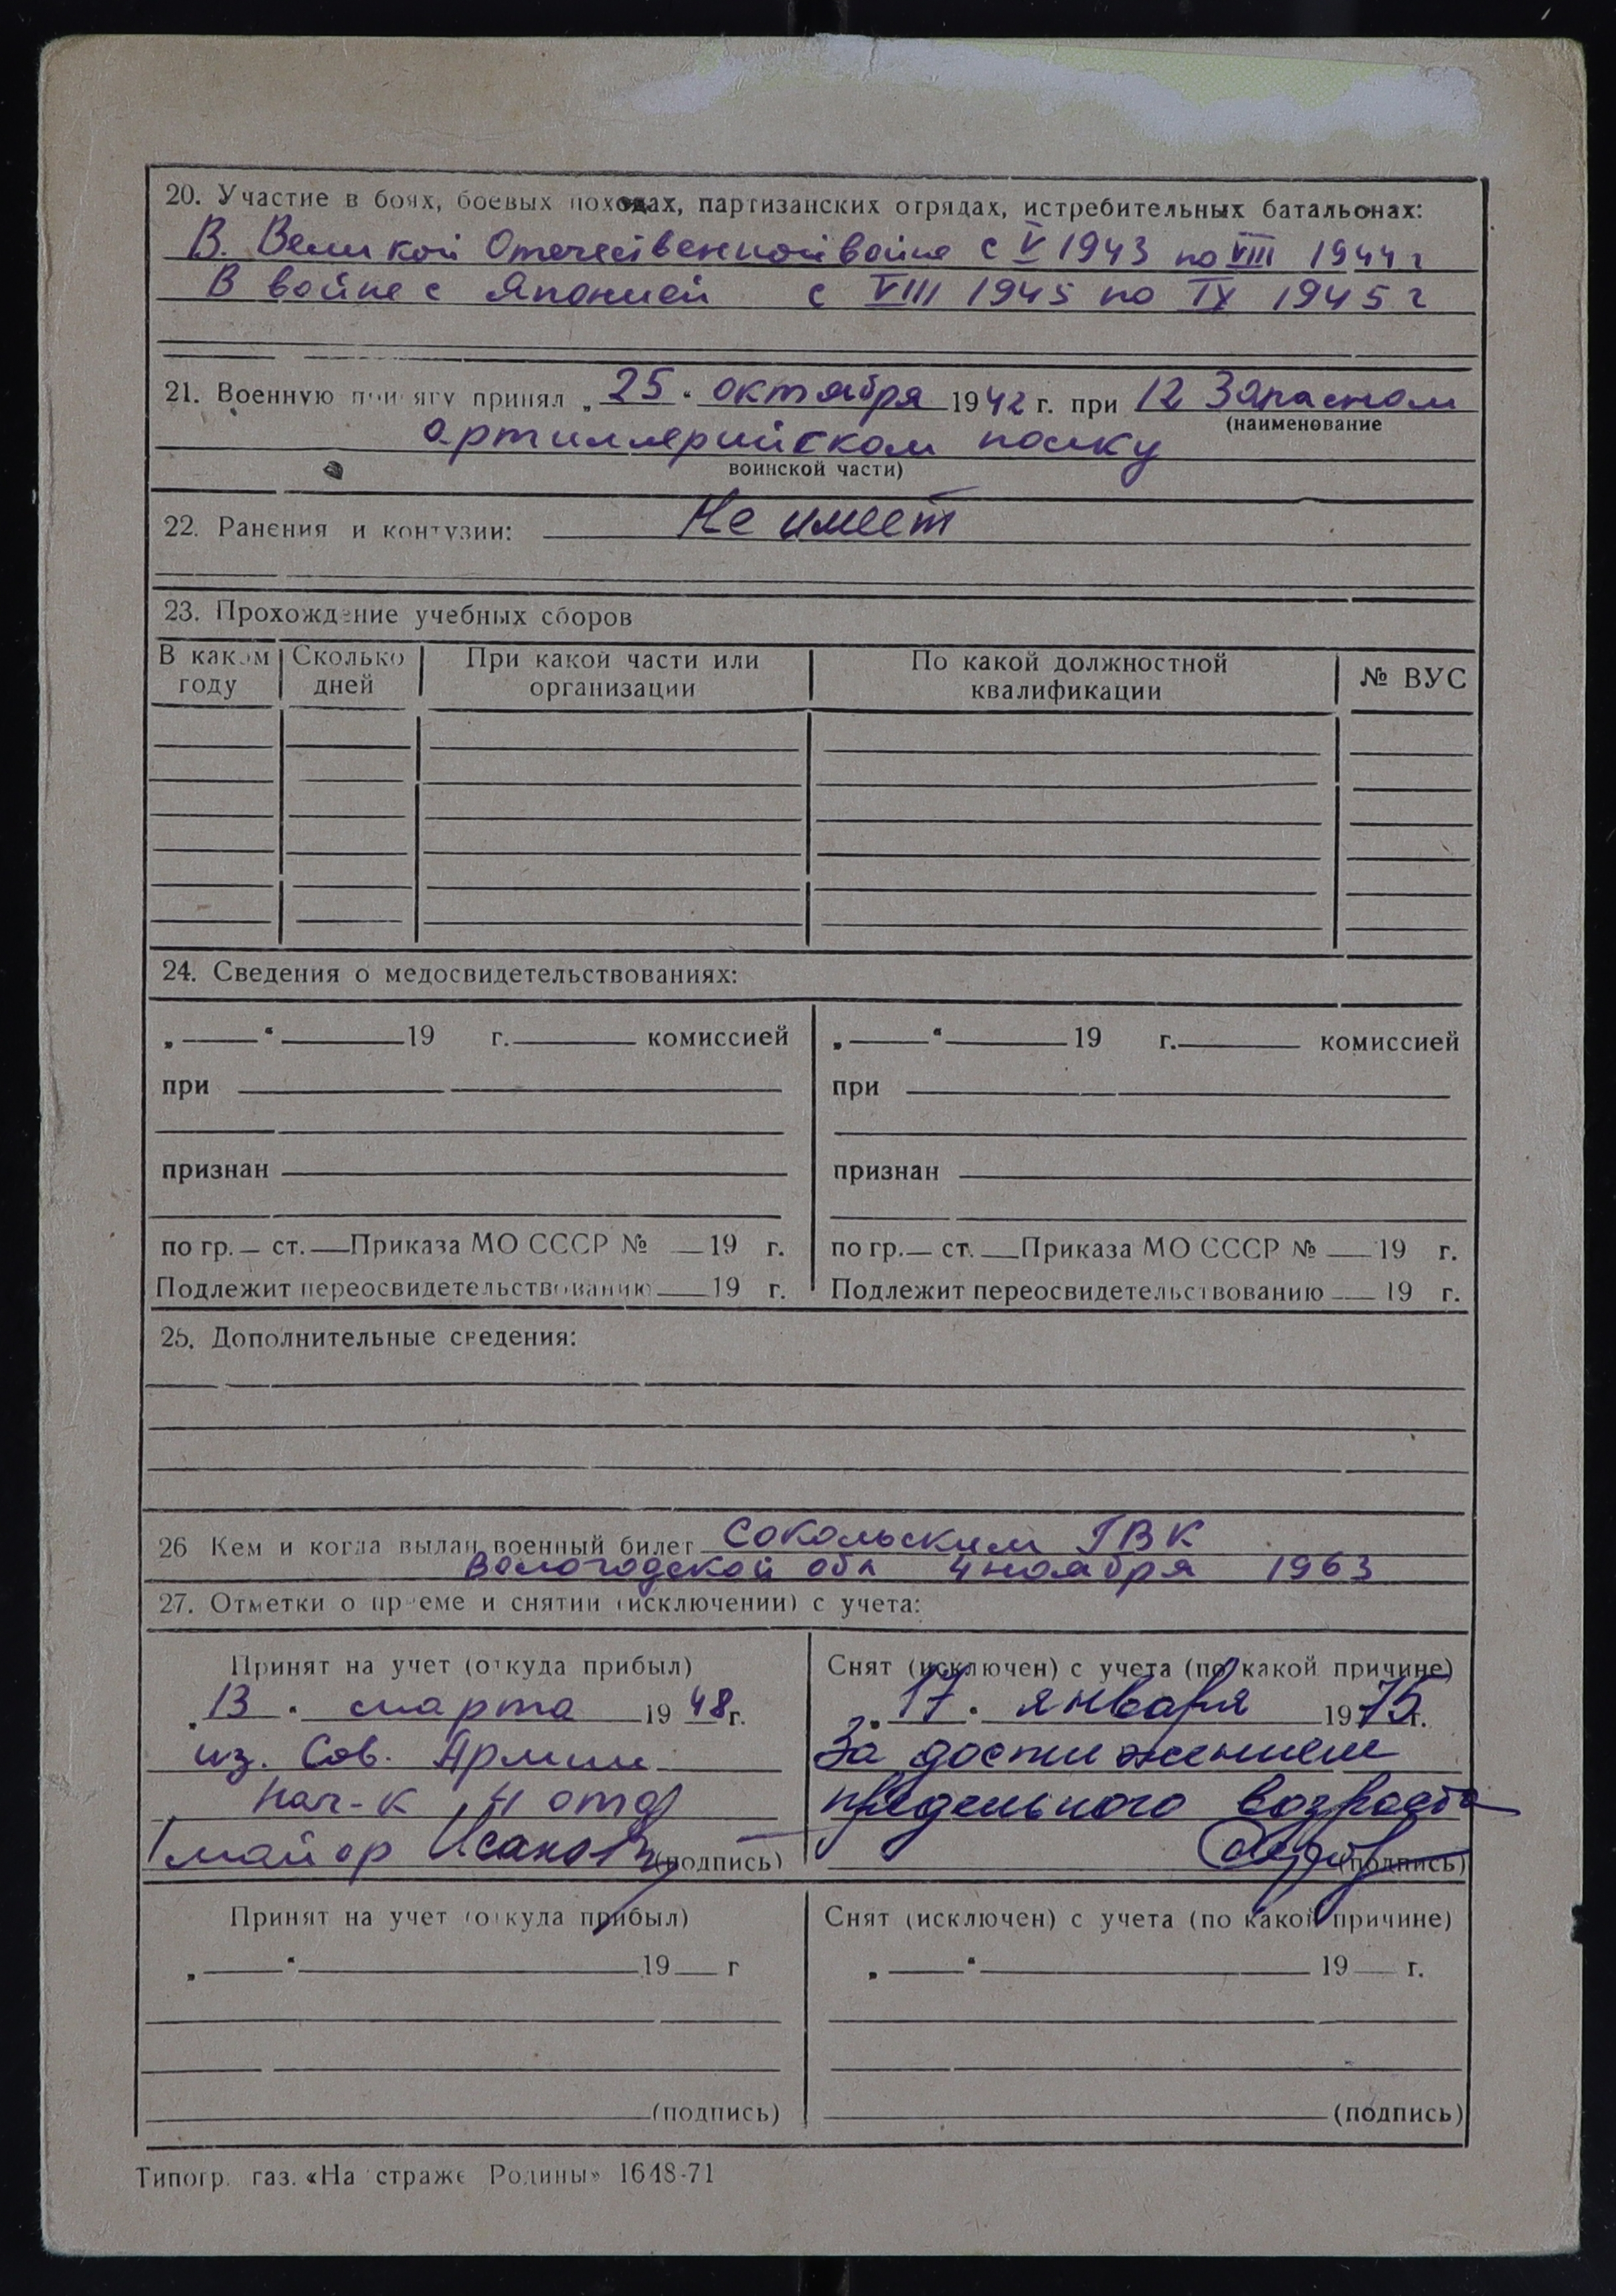 20. Участие в боях, боевых походах, партизанских отрядах, истребительных батальонах:
В. Великой Отечественной войне с V 1943 по VIII 1944 г
В войне с Японией с VIII 1945 по IX 1945 г
21. Военную присягу принял „25" октября 1942 г. при 12 Запасном
(наименование
артиллерийском полку
воинской части)
22. Ранения и контузии: Не имеет
23. Прохождение учебных сборов
В каком году Сколько дней При какой части или организации По какой должностной квалификации № ВУС
24. Сведения о медосвидетельствованиях:
„ " 19 г. комиссией „ " 19 г. комиссией
при при
признан признан
по гр. ст. Приказа МО СССР № 19 г. по гр. ст. Приказа МО СССР № 19 г.
Подлежит переосвидетельствованию 19 г. Подлежит переосвидетельствованию 19 г.
25. Дополнительные сведения:
26 Кем и когда выдан военный билет Сокольским ГВК
Вологодской обл 4 ноября 1963
27. Отметки о приеме и снятии (исключении) с учета:
Принят на учет (откуда прибыл) Снят (исключен) с учета (по какой причине)
„13" марта 1948 г. „17" января 1975 г.
из. Сов. Армии За достижением
нач-к отд предельного возраста
майор Исаков (подпись) (подпись)
Принят на учет (откуда прибыл) Снят (исключен) с учета (по какой причине)
„ " 19 г „ " 19 г.
(подпись) (подпись)
Типогр. газ. «На страже Родины» 1648-71